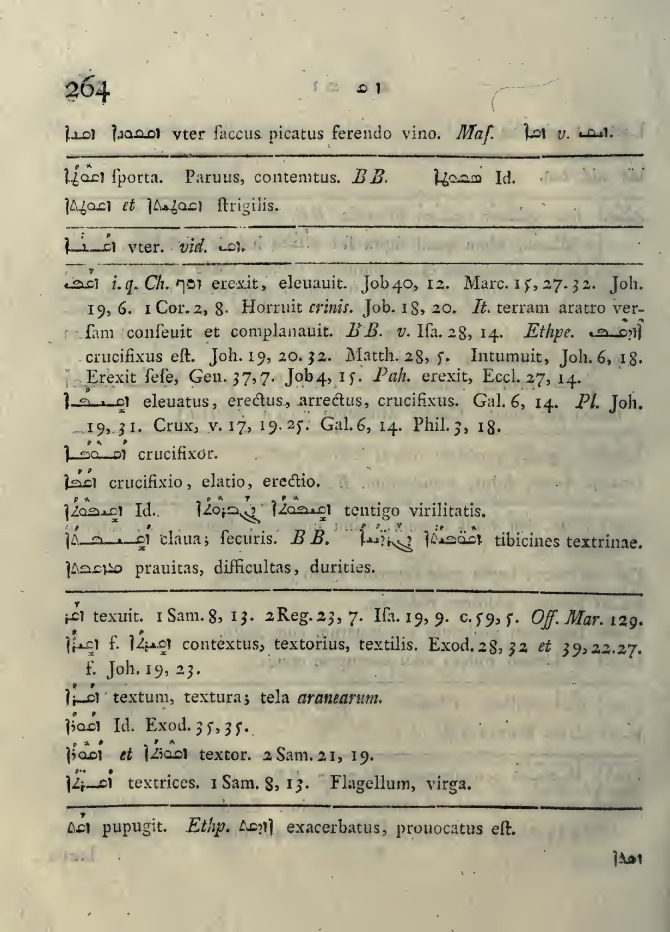 264 ܙܩ
vter ſaccus picatus ferendo vino. Maſ. v.
ſporta. Paruus, contemtus. BB. Id.
et ſtrigilis.
vter. vid.
ܙܩܦ i.q. Ch. זקף erexit, eleuauit. Job 40, 12. Marc. 15, 27. 32. Joh.
19, 6. 1 Cor. 2, 8. Horruit crinis. Job. 18, 20. It. terram aratro ver-
ſam conſeuit et complanauit. BB. v. Iſa. 28, 14. Ethpe. ܐܙܕܩܦ
crucifixus eſt. Joh. 19, 20. 32. Matth. 28, 5. Intumuit, Joh. 6, 18.
Erexit ſeſe, Gen. 37, 7. Job 4, 15. Pah. erexit, Eccl. 27, 14.
ܙܩܝܦܐ eleuatus, erectus, arrectus, crucifixus. Gal. 6, 14. Pl. Joh.
19, 31. Crux, v. 17, 19. 25. Gal. 6, 14. Phil. 3, 18.
ܙܩܘܦܐ crucifixor.
ܙܩܦܐ crucifixio, elatio, erectio.
ܙܩܝܦܘܬܐ Id. ܙܩܝܦܘܬܐ ܓܒܪܘܬܐ tentigo virilitatis.
ܙܩܝܦܬܐ claua; ſecuris. BB. tibicines textrinae.
prauitas, difficultas, durities.
ܙܩܪ texuit. 1 Sam. 8, 13. 2 Reg. 23, 7. Iſa. 19, 9. c. 59, 5. Off. Mar. 129.
ܙܩܝܪܐ f. ܙܩܝܪܬܐ contextus, textorius, textilis. Exod. 28, 32 et 39, 22. 27.
f. Joh. 19, 23.
ܙܩܪܐ textum, textura; tela aranearum.
ܙܩܘܪܐ Id. Exod. 35, 35.
ܙܩܘܪܐ et ܙܩܘܪܬܐ textor. 2 Sam. 21, 19.
ܙܩܪ̈ܬܐ textrices. 1 Sam. 8, 13. Flagellum, virga.
ܙܩܬ pupugit. Ethp. ܐܙܕܩܬ exacerbatus, prouocatus eſt.
ܙܩܬܐ